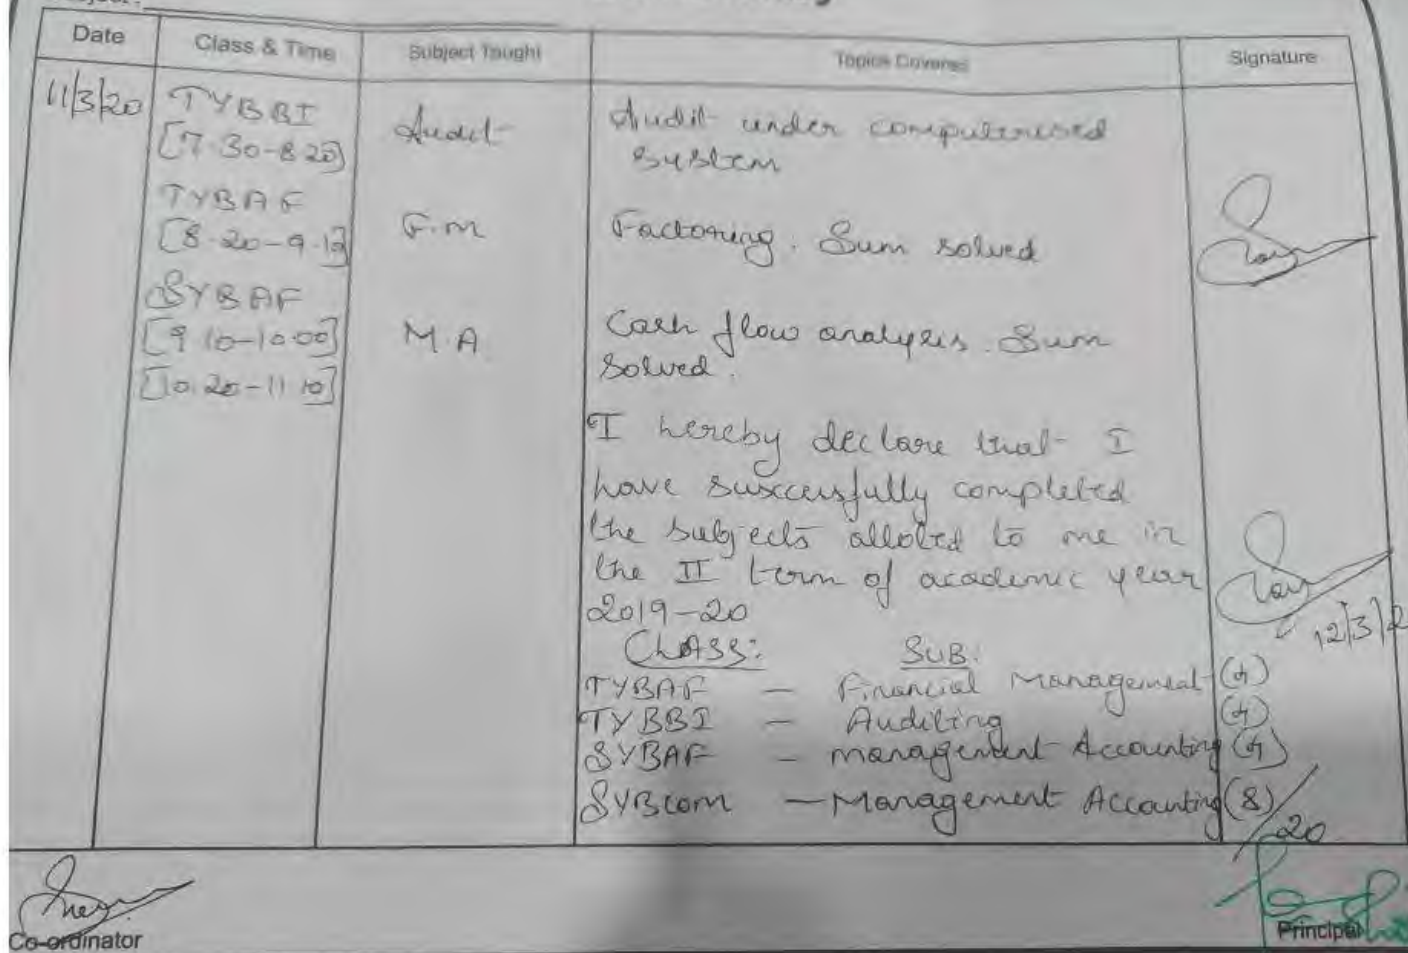 Date Class & Time Subject Taught Topics Covered Signature
11/3/20 TYBBI
[7.30-8.20] Audit Audit under computerised
system
TYBAF
[8.20-9.10] F.M Factoring. Sum solved
SYBAF
[9.10-10.00] M.A. Cash flow analysis. Sum
[10.20-11.10] solved.
I hereby declare that I
have susccessfully completed
the subjects alloted to me in
the II term of academic year
2019-20
12/3/2
CLASS: SUB:
TYBAF - Financial Management (4)
TYBBI - Auditing (4)
SYBAF - Management Accounting (4)
SYBCOM - Management Accounting (8)
20
Co-ordinator Principal